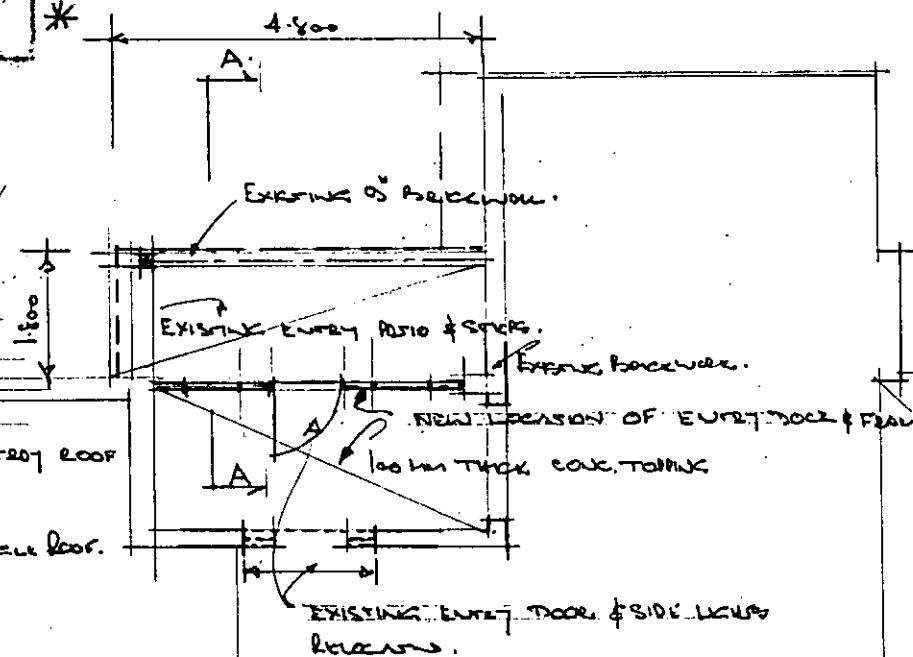 *
4.800
A.
EXISTING 9" BRICKWORK.
1.800
EXISTING ENTRY PATIO & STEPS.
EXISTING BRICKWORK.
NEW LOCATION OF ENTRY DOOR &
A
100 MM THICK CONC. TOPPING
ROOF
A
ROOF.
EXISTING ENTRY DOOR & SIDE LIGHTS
RELOCATED.